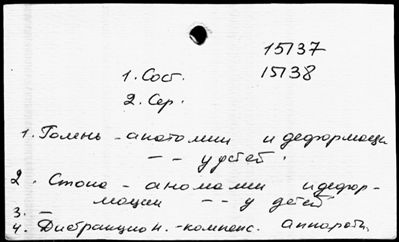 15137
1. Сост. 15138
2. Сер.
1. Голень - анатомии и деформации
-- у детей.
2. Стопа - аномалии и дефор-
мации -- у детей
3. —
4. Дистракцион.-компенс. аппараты